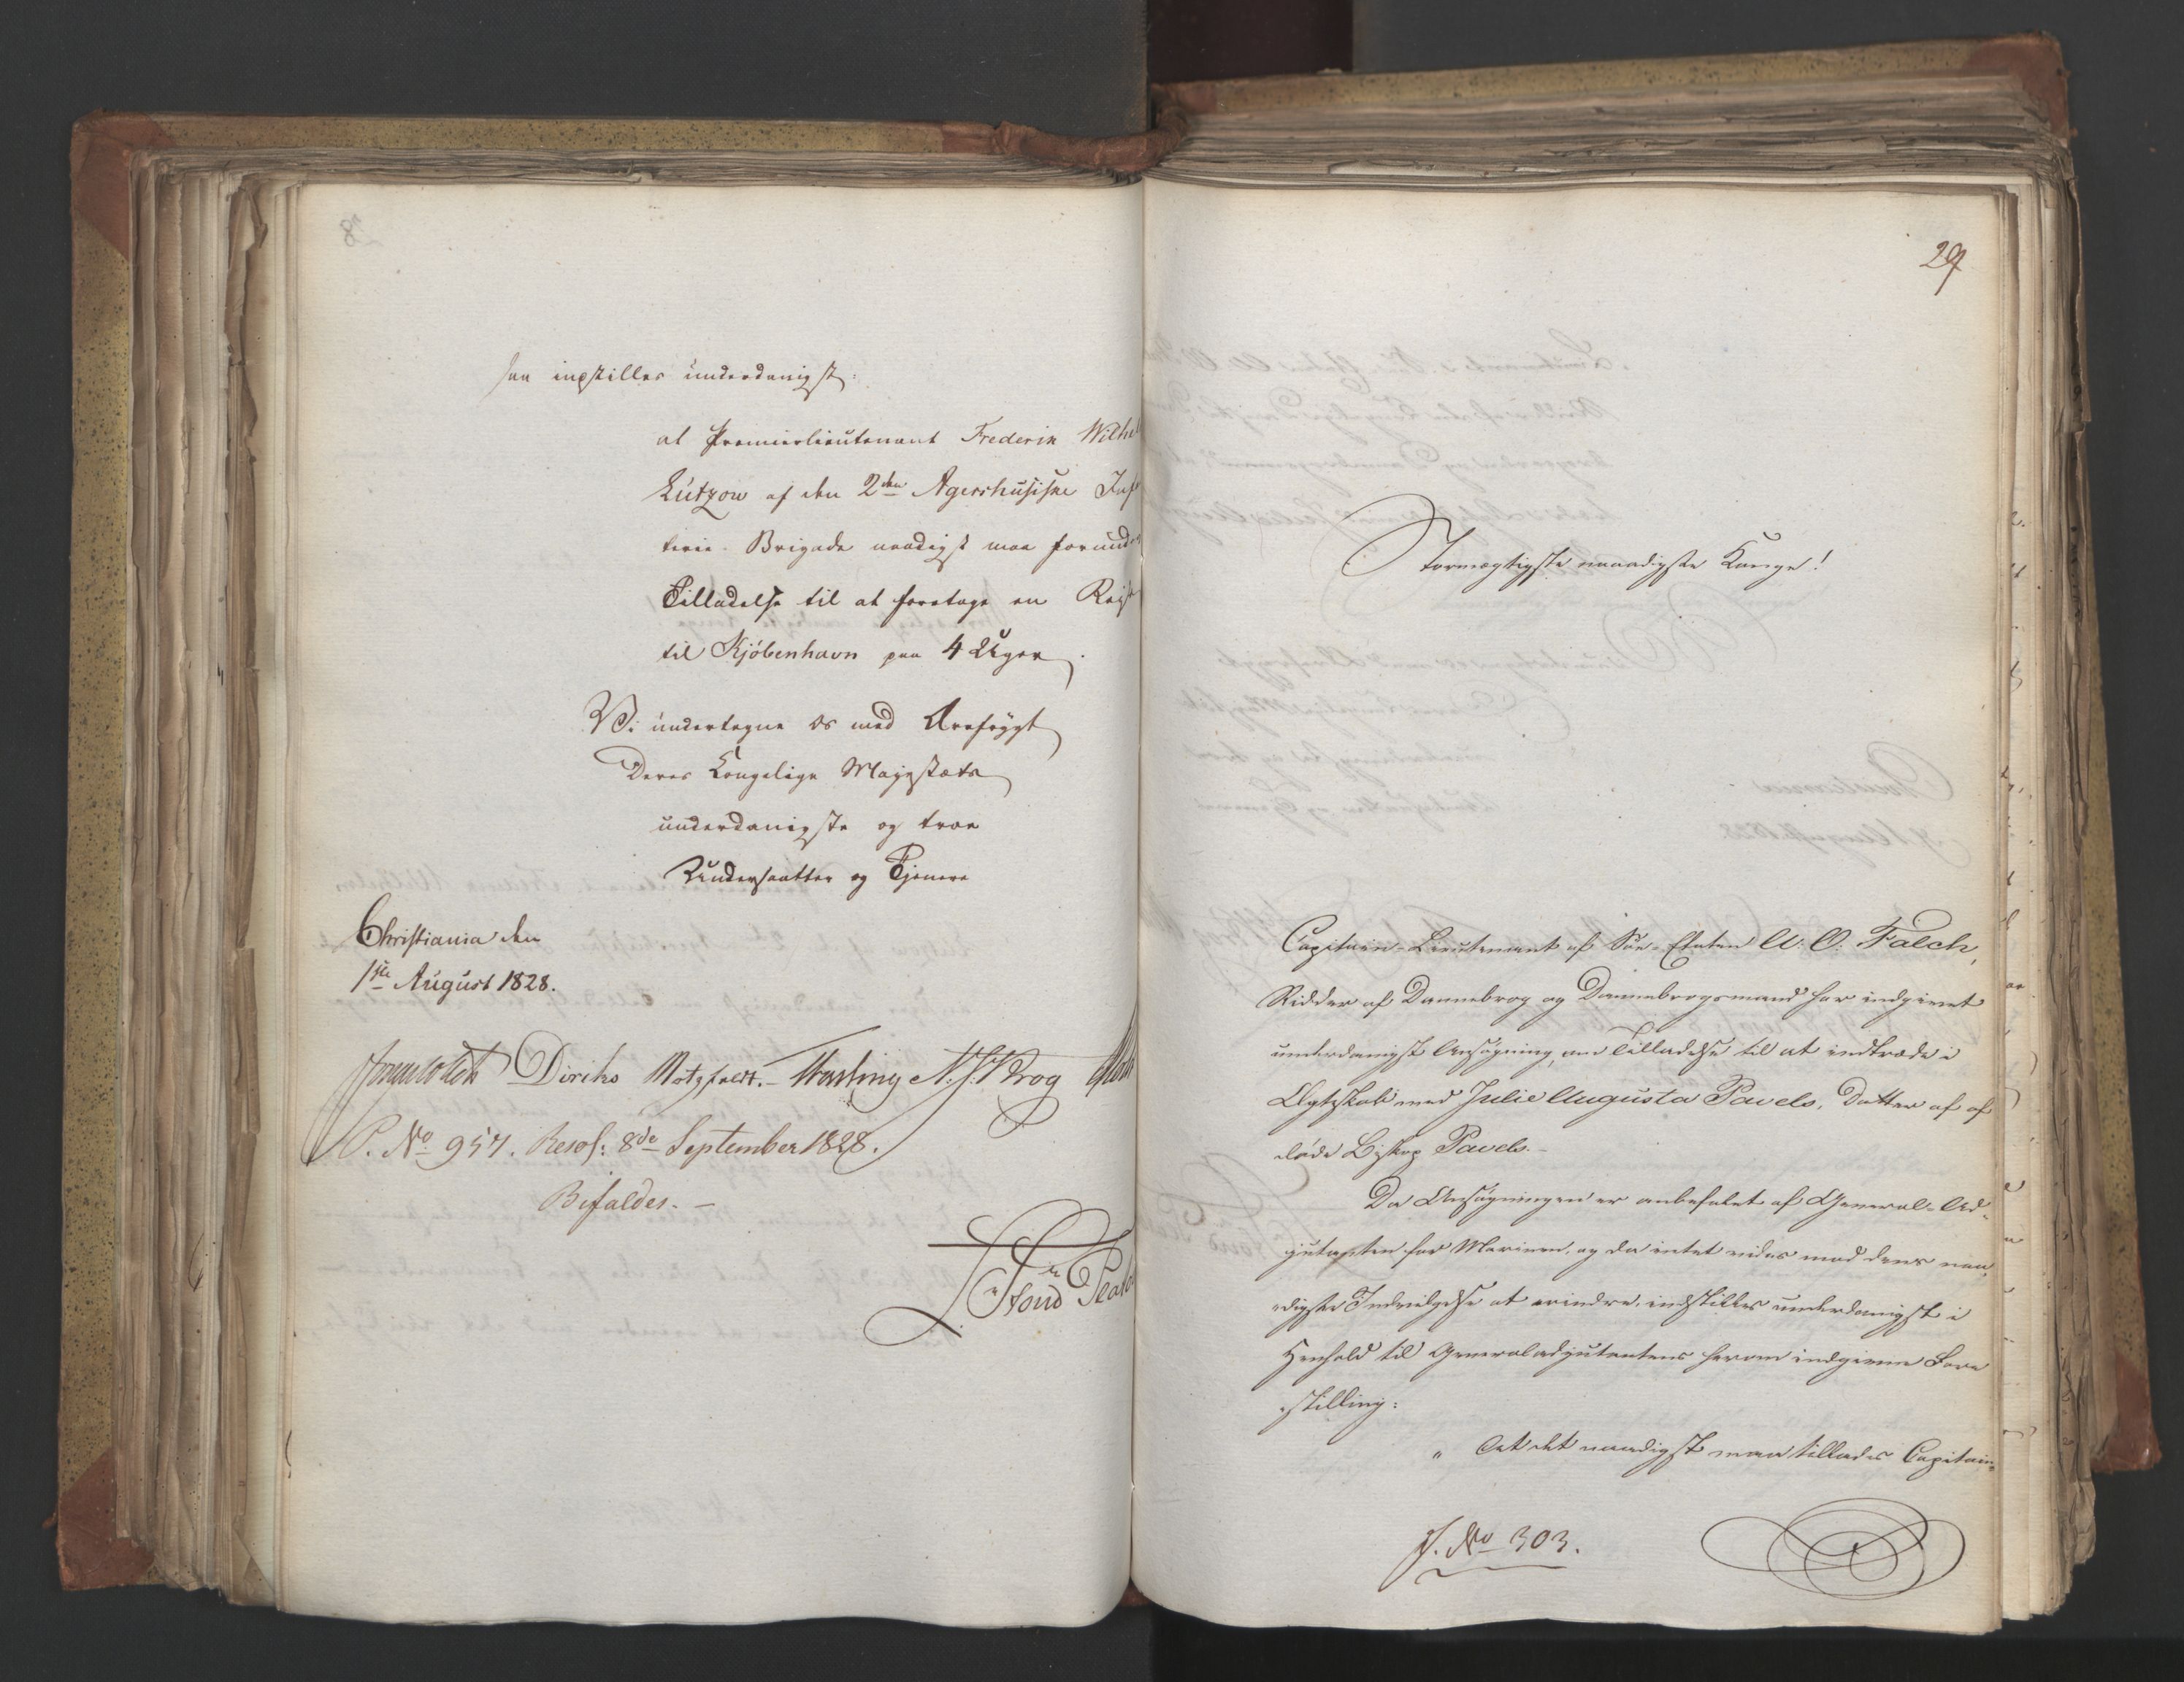 saa inpstilles underdanigst:
at Premierlieutenant Frederik Wilhel
Lützow af den 2den Agershusiske Inf
terie-Brigade naadigst maa forunde
Tilladelse til at foretage en Reise
til Kjöbenhavn paa 4 Uger.
Vi undertegne os med Ærefrygt
Deres Kongelige Majestæts
underdanigste og troe
Undersaatter og Tjenere
Christiania den
1ste August 1828.
Diriks Motzfeldt. N. J. Krog
P. No 957. Resol: 8de September 1828.
Bifaldes.
29
Stormægtigste naaadigste Konge!
Capitain-Lieutenant af Söe-Etaten A: O: Falch,
Ridder af Dannebrog og Dannebrogsmand har indgivet
underdanigst Ansögning om Tilladelse til at indtræde i
Ægteskab med Julie Augusta Pavels, Datter af af
döde Biskop Pavels.-
Da Ansögningen er anbefalet af General-Ad-
jutanten for Marinen, og da intet vides mod dens naa-
digste Indvilgelse at erindre, indstilles underdanigst i
Henhold til Generaladjutantens herom indgivne Fore
stilling:
" At det naadigst maa tillades Capitain-
J. No 303.